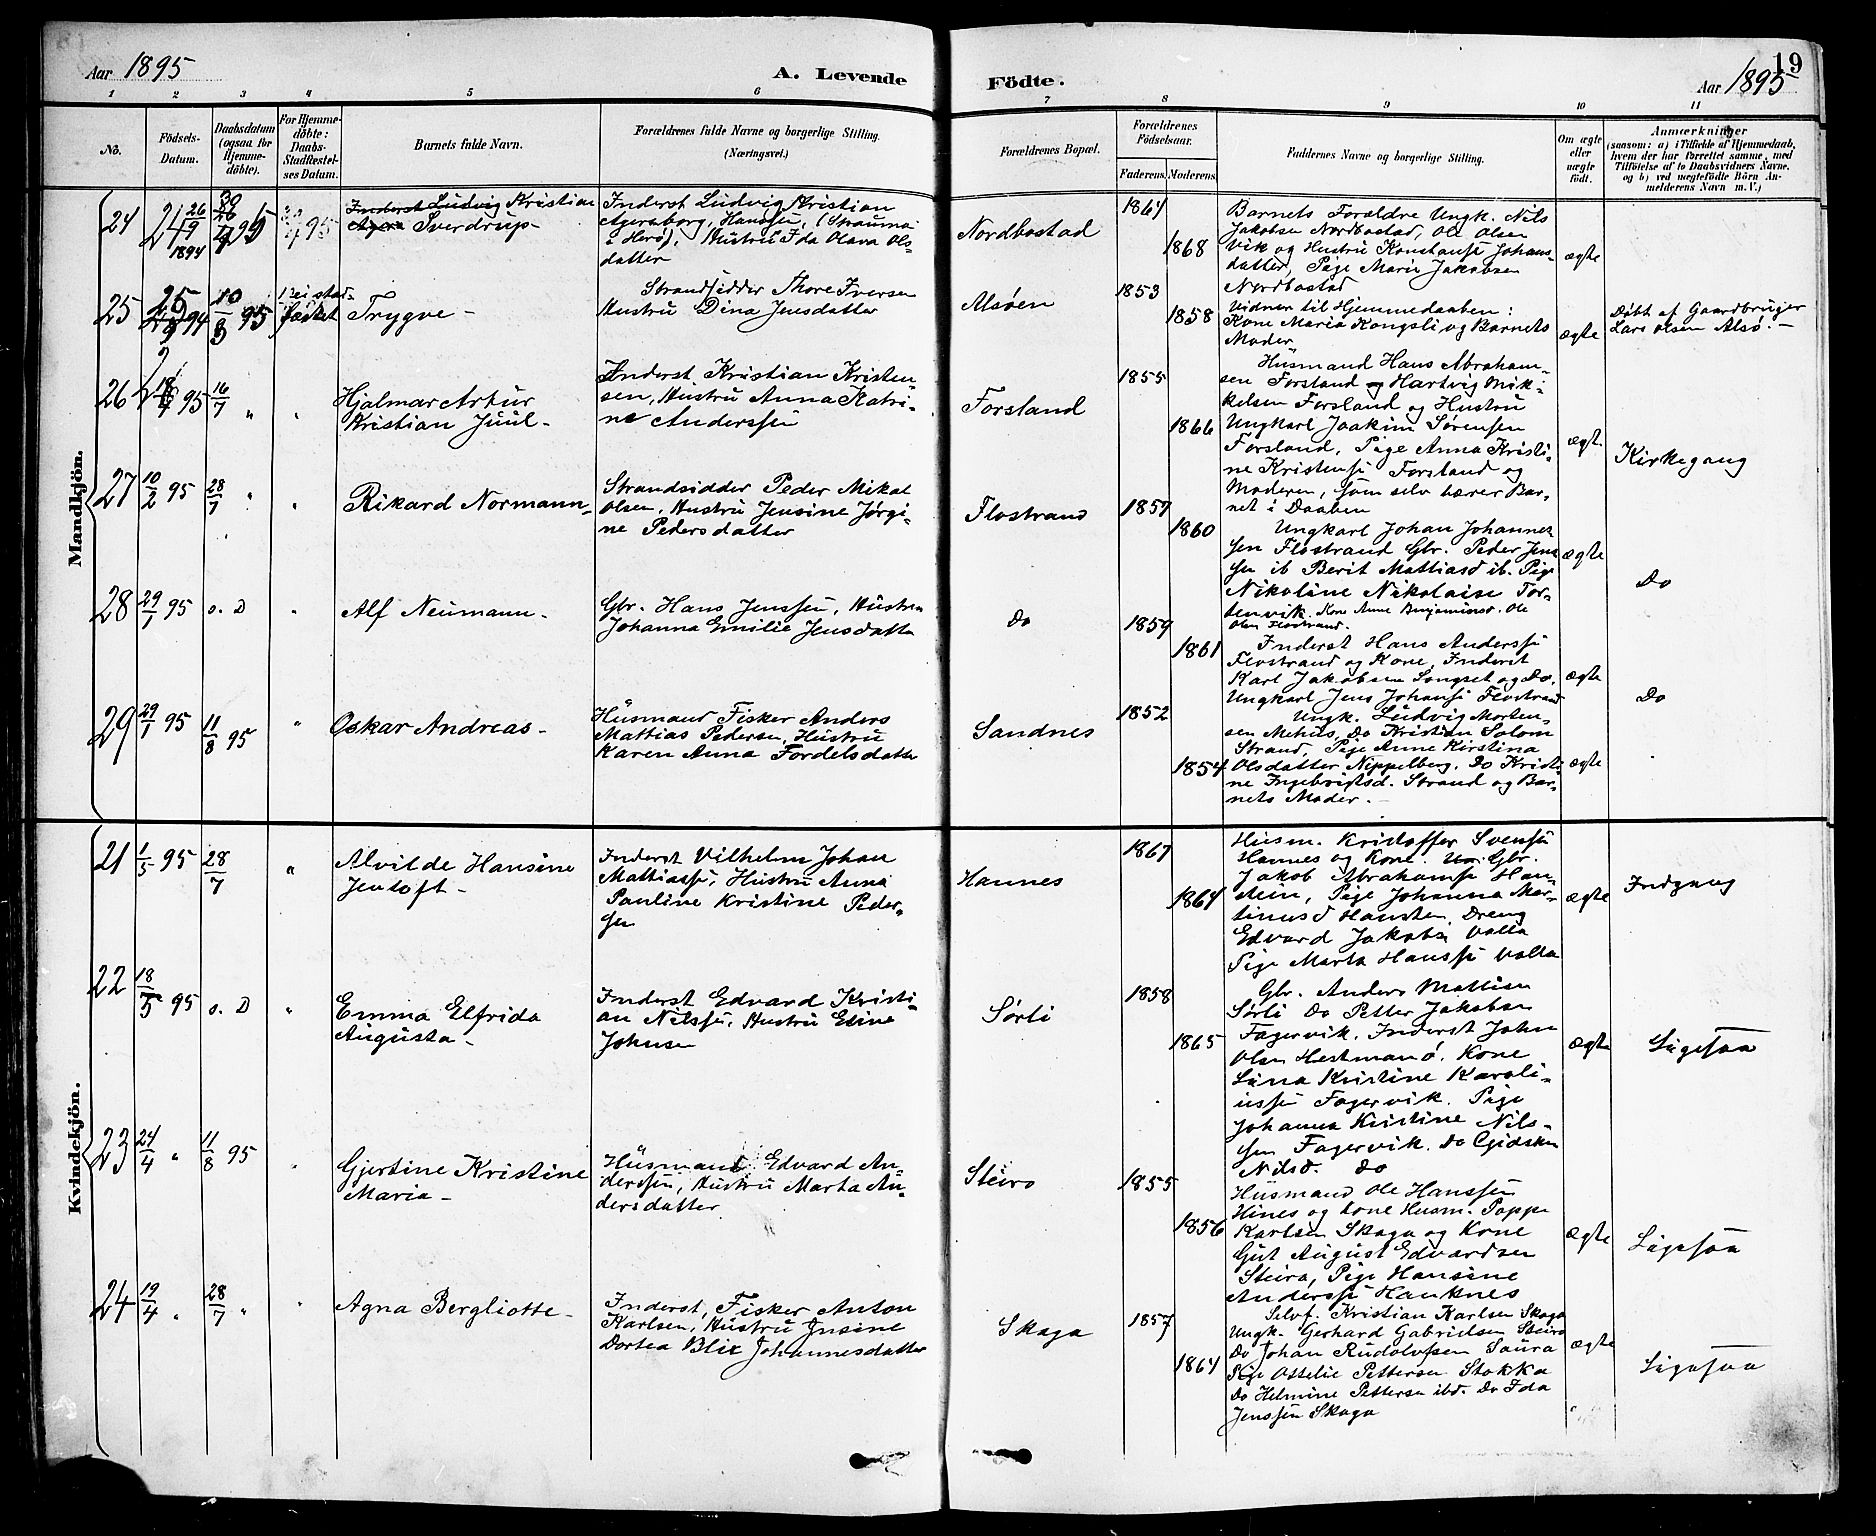 Aar 1895
A. Levende
Födte.
19
Aar 1895
1 2 3 4 5 6 7 8 9 10 11
No.
Födsels-
Datum.
Daabsdatum
(ogsaa for
Hjemme-
döbte).
For Hjemme-
döbte:
Daabs-
Stadfæstel-
ses Datum.
Barnets fulde Navn.
Forældrenes fulde Navne og borgerlige Stilling.
(Næringsvei.)
Forældrenes Bopæl.
Forældrenes
Födselsaar.
Faderens.
Moderens.
Faddernes Navne og borgerlige Stilling.
Om ægte
eller
uægte
födt.
Anmærkninger
(saasom: a) i Tilfælde af Hjemmedaab,
hvem der har forrettet samme, med
Tilföielse af to Daabsvidners Navne,
og b) ved uægtefödte Börn An-
melderens Navn m. V.)
Mandkjön.
24
26/9
1894
95
95
Inderst Ludvig Kristian
Sverdrup-
Inderst Ludvig Kristian
Agersborg, Hanssen, (Strauma
i Herø), Hustru Ida Olava Ols-
datter
Nordbostad
1864
1868
Barnets Forældre Ungk. Nils
Jakobsen Nordbostad, Ole Olsen
Vik og Hustru Konstanse Johans-
datter, Pige Marie Jakobsen
Nordbostad
ægte
25
94
10/3 95
Trygve-
Strandsidder Thore Iversen
Hustru Dina Jensdatter
Alsøen
1853
1858
Vidner til Hjemmedaaben:
Kone Maria Kongsli og Barnets
Moder
ægte
Døbt af Gaardbruger
Lars Olsen Alsø.-
26
95
16/7 "
"
Hjalmar Artur
Kristian Juul-
Inderst Kristian Kristen-
sen, Hustru Anna Katri-
ne Anderssen
Forsland
1855
1866
Husmand Hans Abraham-
sen Forsland og Hartvig Mik-
kelsen Forsland og Hustru
Ungkarl Joakim Sørensen
Forsland, Pige Anna Kristi-
ne Kristense Forsland og
Moderen, som selv bærer Bar-
net i Daaben
ægt.
Kirkegang
27
10/2 95
28/7 "
"
Rikard Normann-
Strandsidder Peder Mikal
Olsen, Hustru Jensine Jørgi-
ne Pedersdatter
Flostrand
1857
1860
Ungkarl Johan Johannes
sen Flostrand Gbr. Peder Jens
sen ib Berit Mattiasd ib. Pige
Nikoline Nikolaise For-
svik. Kone Anne Benjaminsd. Ole
Olsen Flostrand.
ægte
Do
28
29/1 95
s. D
"
Alf Neumann-
Gbr. Hans Jenssen, Hustru
Johanna Emilie Jensdatte
Do
1859
1861
Inderst Hans Anderss
Flostrand og Kone, Inderst
Karl Jakobsen Songset og Do.
Ungkarl Jens Johans Flostrand
ægte
Do
29
29/1 95
11/8 95
"
Oskar Andreas-
Husmand Fisker Anders
Mattias Pedersen, Hustru
Karen Anna Fordelsdatter
Sandnes
1852
1854
Ungk. Ludvig Morten-
sen Mehus, Do Kristian Solom
Strand, Pige Anne Kirstina
Olsdatter Nippelberg, Do Kristi-
ne Ingebrigtsd. Strand og Bar-
nets Moder.-
ægte
Kvindekjön.
21
1/5 95
28/7
"
Alvilde Hansine
Jentoft-
Inderst Vilhelm Johan
Mattiasse, Hustru Anna
Pauline Kristine Peder-
sen
Hannes
1867
1864
Husm. Kristoffer Svens
Hannes og Kone. Gbr.
Jakob Abrahams Han-
stein, Pige Johanna Mar-
tinusd Hansten Dreng
Edvard Jakobs Valla
Pige Marta Hanss Valla
ægte
Indgang
22
18/5 95
s. D
"
Emma Elfrida
Augusta-
Inderst Edvard Kristi-
an Nilsse, Hustru Eline
Johnsen
Sørli
1858
1865
Gbr. Anders Mattisen
Sørli Do Petter Jakobsen
Fagervik. Inderst John
Olsen Hestmanø. Kone
Lina Kristine Karoli-
usse Fagervik. Pige
Johanna Kristine Nils-
sen Fagervik. Do Gjidsken
Nilsd. Do
ægte
Ligesaa
23
24/4 "
11/8 95
"
Gjertine Kristine
Maria-
Husmand Edvard An-
derssen, Hustru Marta An-
dersdatter
Steiro
1855
1856
Husmand Ole Hanssen
Hines og Kone Husm. Poppe
Karlsen Skaga og Kone
Gut August Edvardsen
Steira, Pige Hansine
Anderss Hauknes
ægte
Ligesaa
24
19/4 "
28/7 "
"
Agna Bergliotte-
Inderst, Fisker Anton
Karlsen, Hustru Jnsine
Dortea Blix Johannesdatter
Skaga
1857
1864
Selvf. Kristian Karlsen Skaga
Ungk. Gerhard Gabrielsen Steiro
Do Johan Rudolvsen Saura
Pige Ottelie Pettersen Stokka
Do Helmine Pettersen ibd. Do Ida
Jenssen Skaga
ægte
Ligesaa